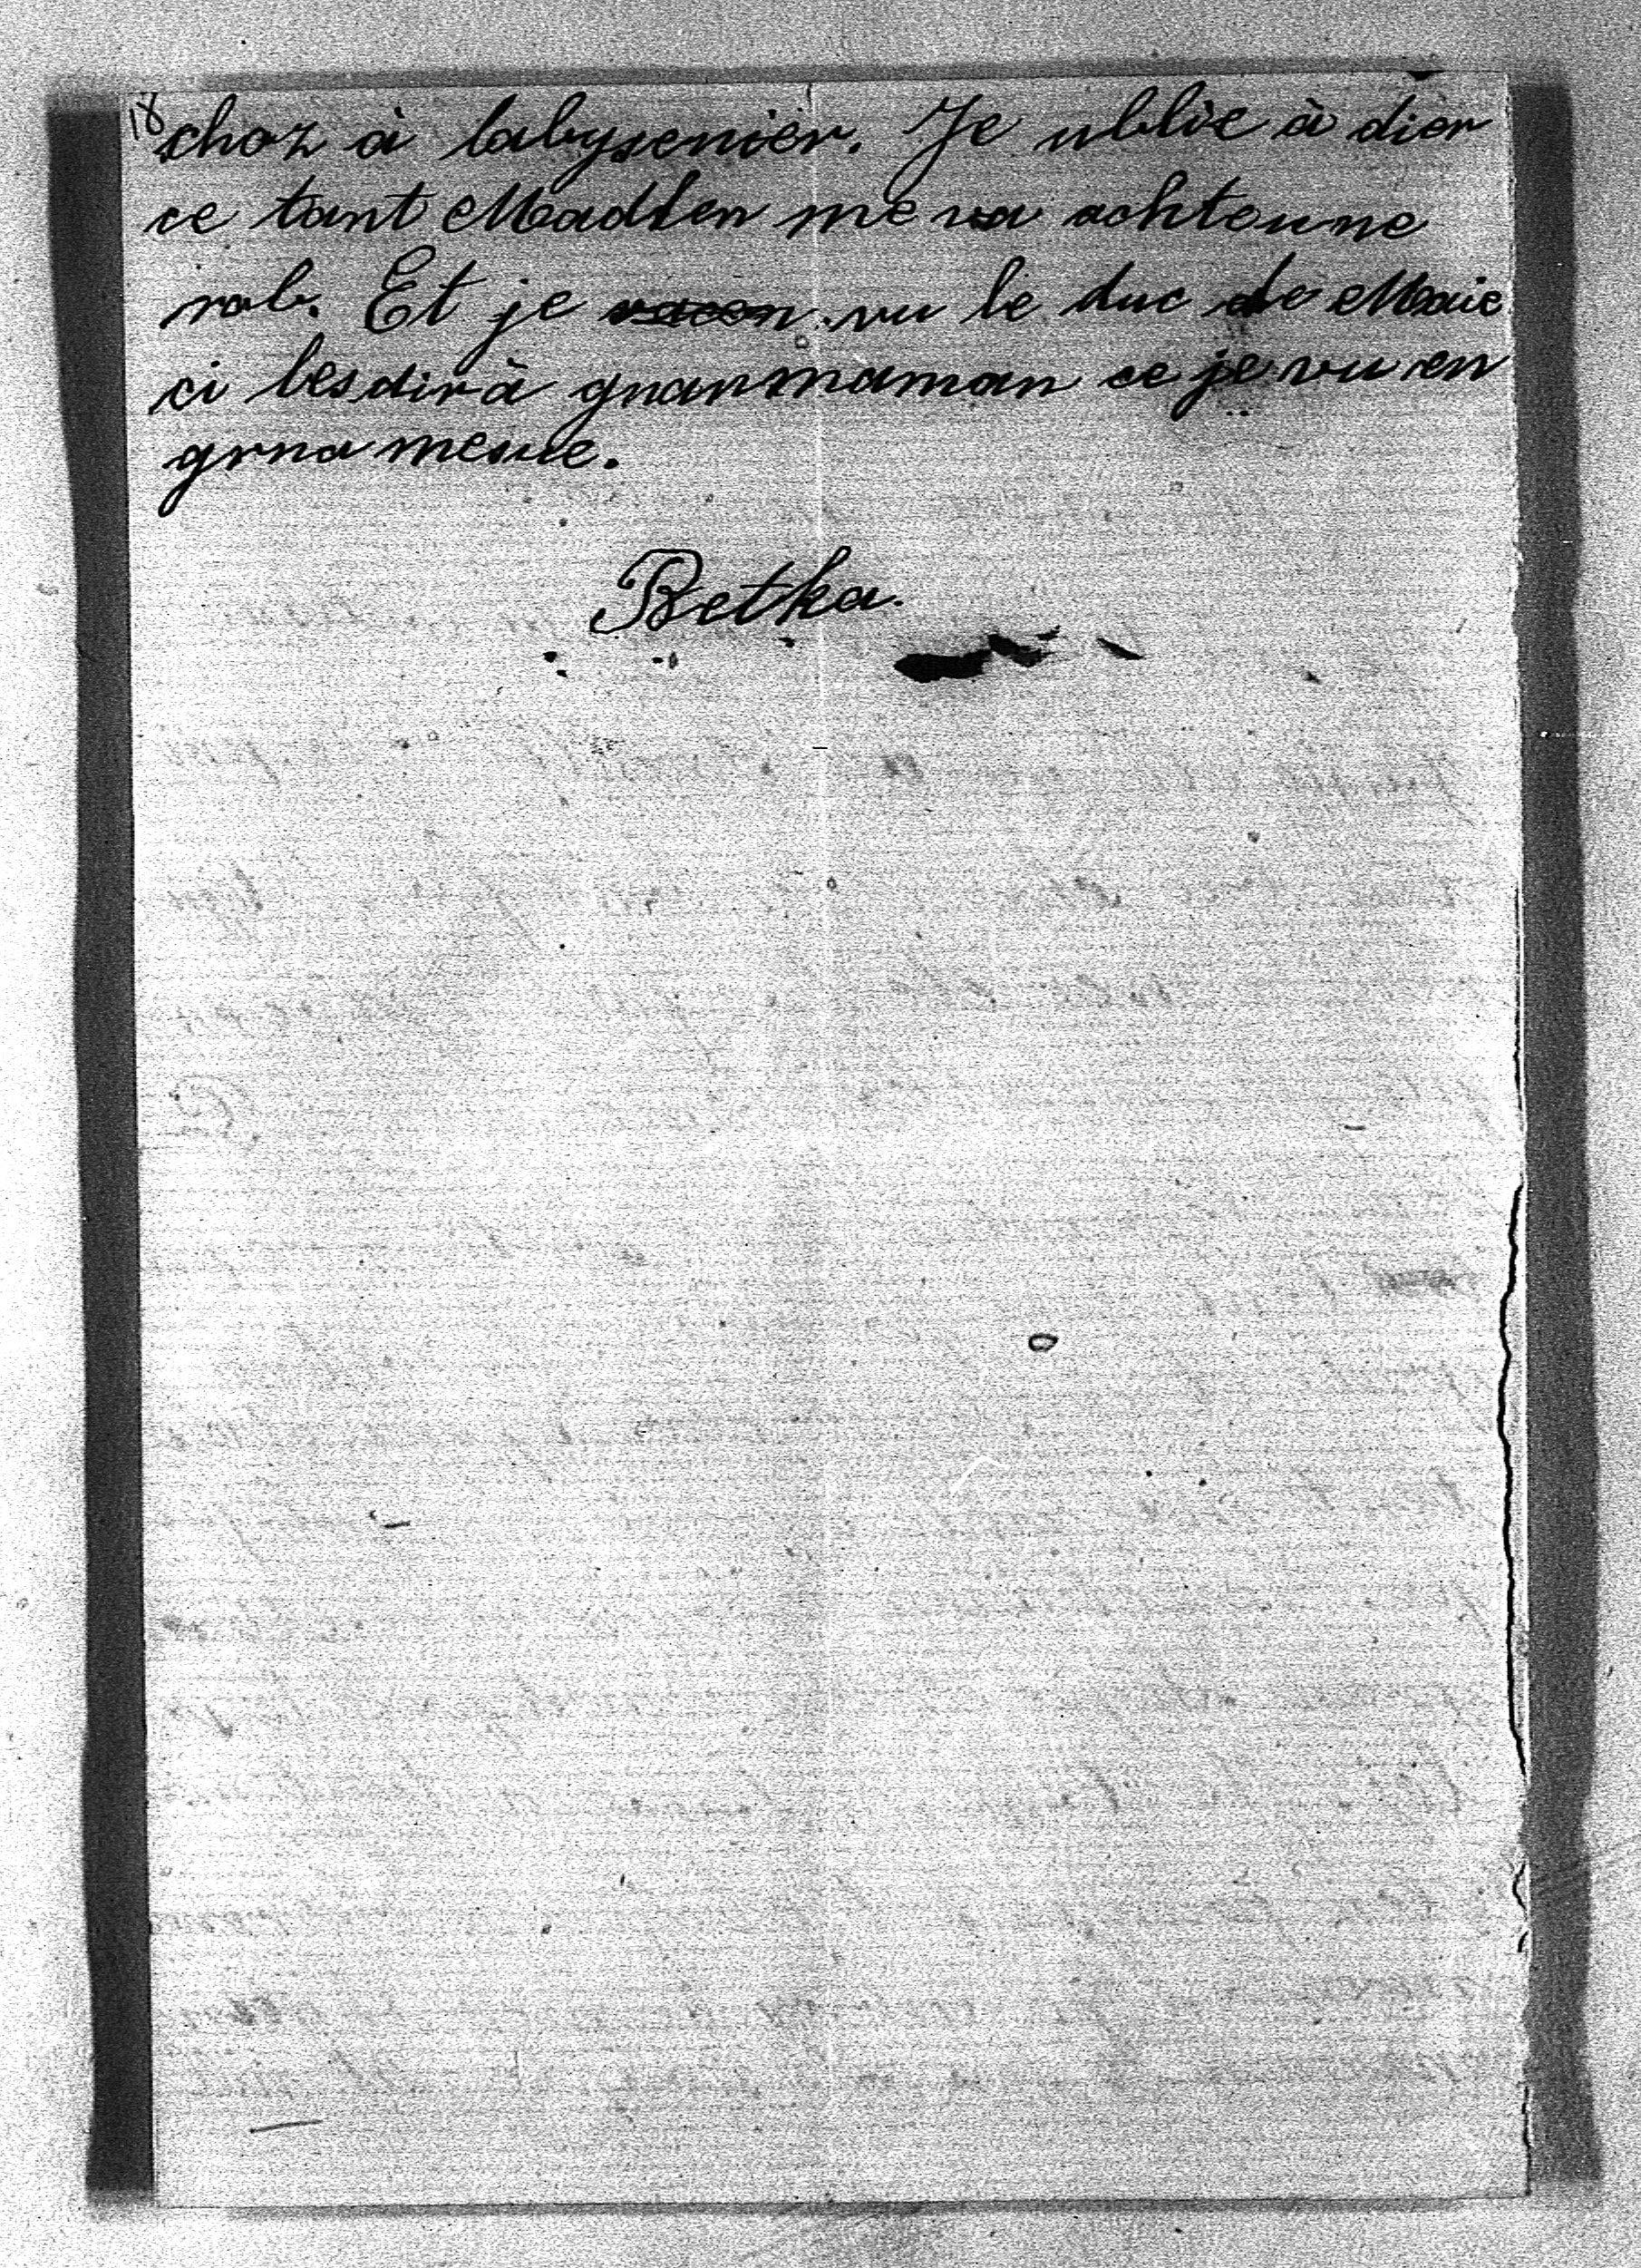 18
choz à labysenièr. Je ublie à dier
ce tant Madlen me va achteune
rob. Et je vu le duc de Maie
ci lesdirà gnanmaman ce je vu en
grna mesue.
Betka.